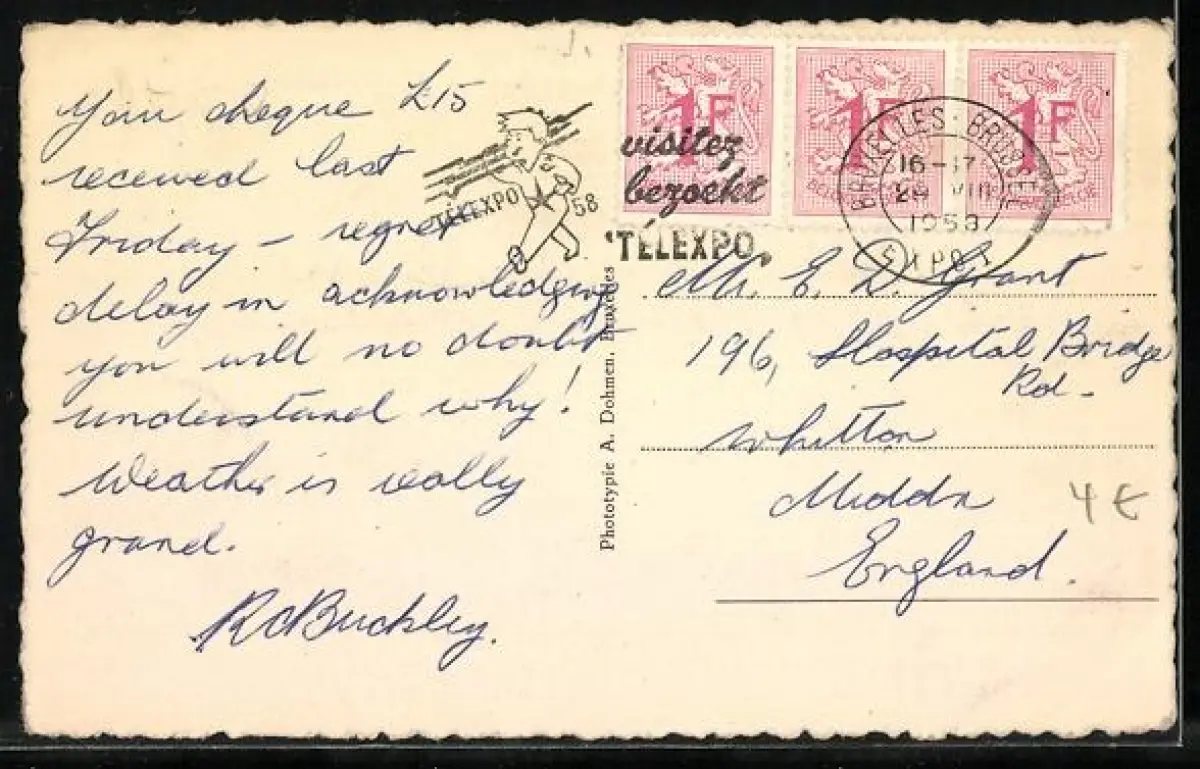 Your cheque £15
received last
Friday – regret
delay in acknowledging
you will no doubt
understand why!
Weather is really
grand.
R C Buckley.
TÉLEXPO 58
visitez
bezoekt
TÉLEXPO
1F
1F
1F
BRUXELLES · BRUSSEL
16-17
VIII
1958
Phototypie A. Dohmen, Bruxelles
Mr. E. D. Grant
196, Hospital Bridge
Rd.
Whitton
Middx
England.
4 €